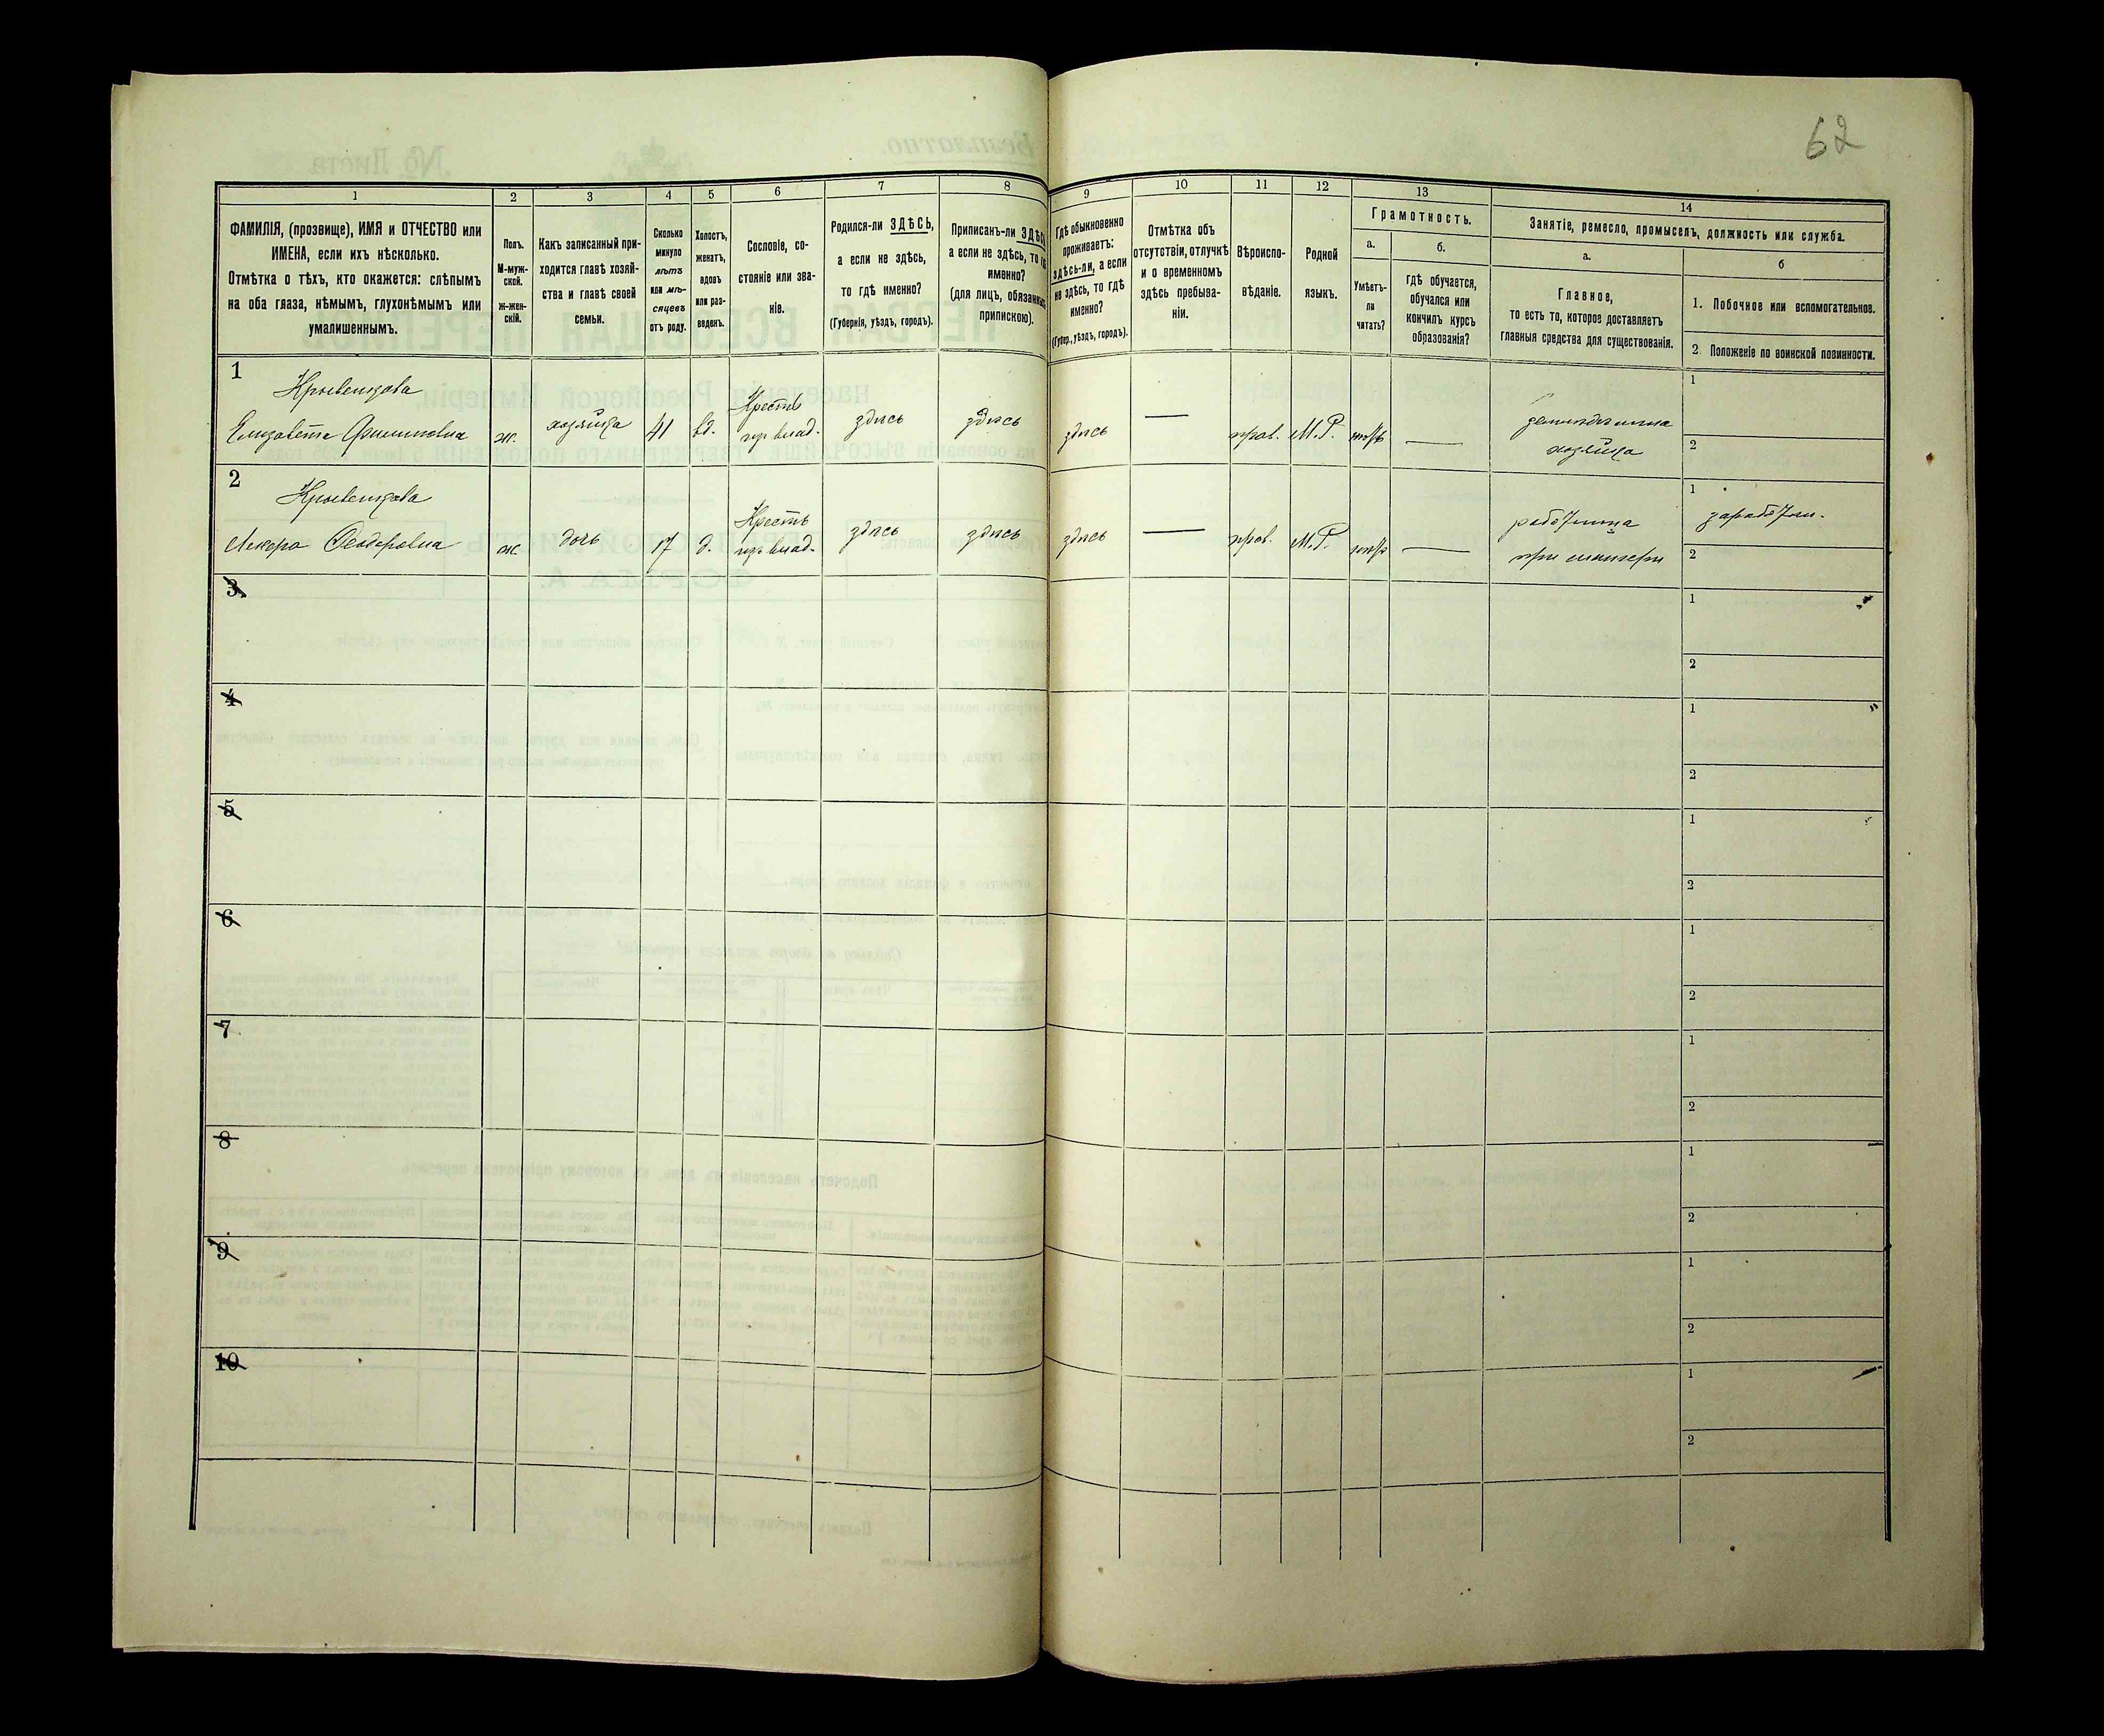 62
1
2
3
4
5
6
7
8
9
10
11
12
13
14
ФАМИЛІЯ, (прозвище), ИМЯ и ОТЧЕСТВО или
ИМЕНА, если ихъ нѣсколько.
Отмѣтка о тѣхъ, кто окажется: слѣпымъ
на оба глаза, нѣмымъ, глухонѣмымъ или
умалишеннымъ.
Полъ.
М-муж-
ской.
ж-жен-
скій.
Какъ записанный при-
ходится главѣ хозяй-
ства и главѣ своей
семьи.
Сколько
минуло
лѣтъ
или мѣ-
сяцевъ
отъ роду.
Холостъ,
женатъ,
вдовъ
или раз-
веденъ.
Сословіе, со-
стояніе или зва-
ніе.
Родился-ли ЗДѢСЬ,
а если не здѣсь,
то гдѣ именно?
(Губернія, уѣздъ, городъ).
Приписанъ-ли ЗДѢСЬ
а если не здѣсь, то
именно?
(для лицъ, обязанныхъ
припискою).
Гдѣ обыкновенно
проживаетъ:
здѣсь-ли, а если
не здѣсь, то гдѣ
именно?
(Губер., уѣздъ, городъ).
Отмѣтка объ
отсутствіи, отлучкѣ
и о временномъ
здѣсь пребыва-
ніи.
Вѣроиспо-
вѣданіе.
Родной
языкъ.
Грамотность.
а.
Умѣетъ-
ли
читать?
б.
гдѣ обучается,
обучался или
кончилъ курсъ
образованія?
Занятіе, ремесло, промыселъ, должность или служба.
а.
Главное,
то есть то, которое доставляетъ
главныя средства для существованія.
б
1. Побочное или вспомогательное.
2 Положеніе по воинской повинности.
1
Елизавета Филиповна
ж.
хозяйка
41
вд.
Крестъ
изъ влад.
здѣсь
здѣсь
здѣсь
—
прав.
М.Р.
—
хозяйка
1
2
2
Ѳеодоровна
ж.
дочь
17
д.
Крестъ
изъ влад.
здѣсь
здѣсь
здѣсь
—
прав.
М.Р.
—
работница
при матери
1
2
3
1
2
4
1
2
5
1
2
6
1
2
7
1
2
8
1
2
9
1
2
10
1
2